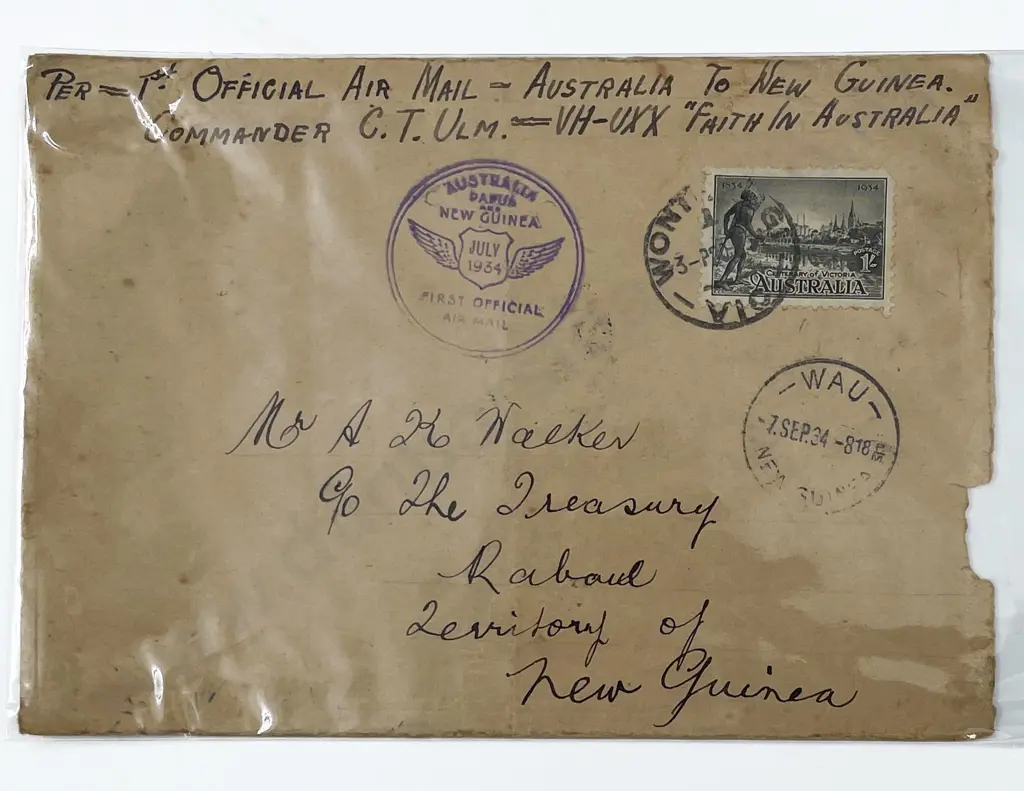 PER = 1st OFFICIAL AIR MAIL - AUSTRALIA TO NEW GUINEA.
COMMANDER C. T. ULM. = VH-UXX "FAITH IN AUSTRALIA"
AUSTRALIA
PAPUA
AND
NEW GUINEA
JULY
1934
FIRST OFFICIAL
AIR MAIL
1834 1934
POSTAGE
1/-
CENTENARY of VICTORIA
AUSTRALIA
WONT
-WAU-
-7.SEP.34 -818
NEW GUINEA
Mr A K Walker
C/o The Treasury
Rabaul
Territory of
New Guinea